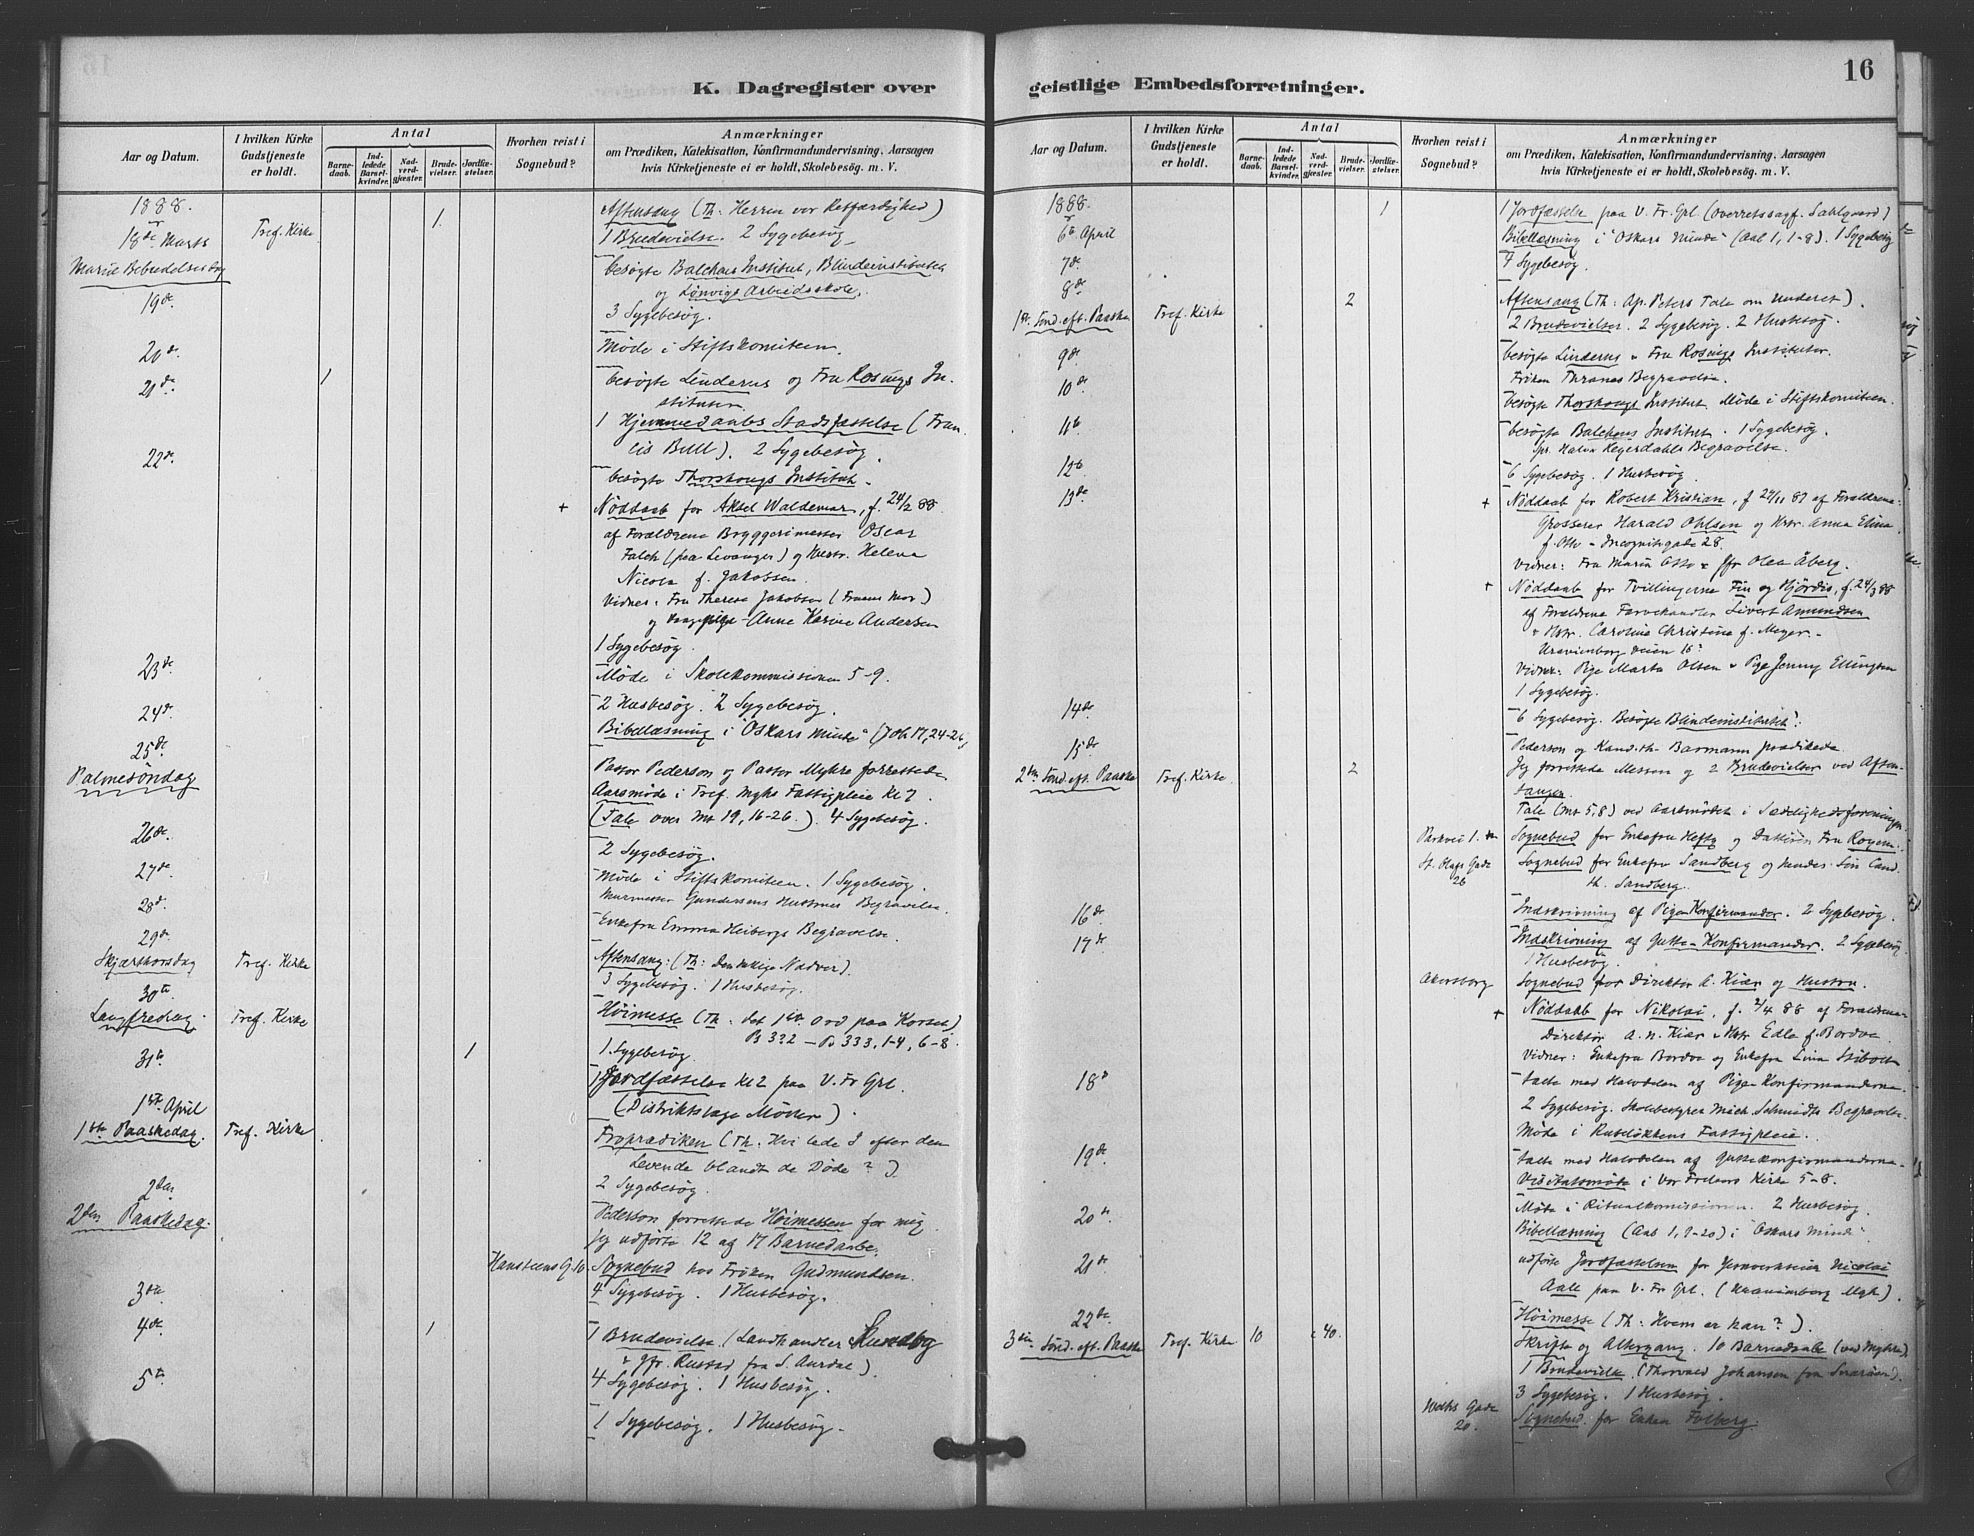 16
K. Dagregister over
geistlige Embedsforretninger.
Aar og Datum.
I hvilken Kirke Gudstjeneste er holdt.
Antal
Barnedaab.
Indledede Barselkvinder.
Nadverdgjester.
Brudevielser.
Jordfæstelser.
Hvorhen reist i Sognebud?
Anmærkninger
om Prædiken, Katekisation, Konfirmandundervisning, Aarsagen
hvis Kirketjeneste ei er holdt, Skolebesøg. m. V.
1888.
18de Marts Tref. Kirke 1. Aftensang (Th: Herren vor Retfærdighed)
1 Brudevielse. 2 Sygebesøg
Mariæ Bebudelsesdag
besøgte Balchens Institut, Blindeinstitutet
og Lønvigs Arbeidsskole.
19de
3 Sygebesøg.
20de Møde i Stiftskomiteen.
21de 1 besøgte Linderns og Fru Rosings In-
stituter
1 Hjemmedaabs Stadfæstelse (Fran-
cis Bull). 2 Sygebesøg.
22de
besøgte Thorskougs Institut.
+ Nøddaab for Aksel Waldemar, f. 24/2 88.
af Forældrene Bryggerimester Oscar
Falck (paa Levanger) og Hustr. Helena
Nicola f. Jakobsen.
Vidner: Fru Theresa Jakobsen (Fruens Mor)
og Anne Karine Andersen
1 Sygebesøg.
23de Møde i Skolekommissionen 5-9.
24de 2 Husbesøg. 2 Sygebesøg.
Bibellæsning i "Oskars Minde" (Joh 17, 24-26)
25de
Palmesøndag
Pastor Pederson og Pastor Myhre forrettede
Aarsmøde i Tref. Mghs Fattigpleie Kl 7
(Tale over Mt 19, 16-26.) 4 Sygebesøg.
26de 2 Sygebesøg.
27de Møde i Stiftskomiteen. 1 Sygebesøg.
Murmester Gundersens Hustrues Begravelse.
28de
Enkefru Emma Heibergs Begravelse.
29de
Skjærthorsdag Tref. Kirke Aftensang: (Th: Den hellige Nadver).
3 Sygebesøg. 1 Husbesøg.
30te
Langfredag. Tref. Kirke Høimesse (Th: det 1ste Ord paa Korset)
Ps 332 — Ps 333, 1-4, 6-8.
1 Sygebesøg
31te 1 1 Jordfæstelse Kl 2 paa V. Fr Grl.
(Distriktslæge Møller).
1ste April
1ste Paaskedag. Tref. Kirke Froprædiken (Th: Hvi lede I efter den
Levende blandt de Døde?)
2 Sygebesøg.
2den
2den Paaskedag.
Pederson forrettede Høimessen for mig
Jeg udførte 12 af 17 Barnedaabe.
Hansteens G. 10. Sognebud hos Frøken Gudmundsen.
3die 4 Sygebesøg. 1 Husbesøg.
4de 1 1 Brudevielse (Landhandler Sundby
& Jfr. Rustad fra S. Aurdal)
4 Sygebesøg. 1 Husbesøg.
5te 1 Sygebesøg. 1 Husbesøg.
Aar og Datum.
I hvilken Kirke Gudstjeneste er holdt.
Antal
Barnedaab.
Indledede Barselkvinder.
Nadverdgjester.
Brudevielser.
Jordfæstelser.
Hvorhen reist i Sognebud?
Anmærkninger
om Prædiken, Katekisation, Konfirmandundervisning, Aarsagen
hvis Kirketjeneste ei er holdt, Skolebesøg. m. V.
1888.
1 1 Jordfæstelse paa V. Fr. Grl (Overretssagf. Sahlgaard)
6te April Bibellæsning i "Oskars Minde" (Aal 1, 1-8). 1 Sygebesøg
7de 4 Sygebesøg.
8de
1ste Sønd. eft. Paaske Tref. Kirke 2 Aftensang (Th: Ap. Peters Tale om Underet).
2 Brudevielser. 2 Sygebesøg. 2 Husbesøg.
9de besøgte Linderns & Fru Rosings Instituter.
Frøken Thranes Begravelse.
10de besøgte Thorskougs Institut. Møde i Stiftskomiteen.
11te besøgte Balchens Institut. 1 Sygebesøg.
Heyerdahls Begravelse.
12te 6 Sygebesøg. 1 Husbesøg
13de + Nøddaab for Robert Kristian, f. 87 af Forældrene
Grosserer Harald Ohlsen og Hstr. Anna Elina
f. Otto - Incognitogade 28.
Vidner: Fru Maria Otto & Jfr Olea Åberg.
+ Nøddaab for Tvillingerne Fin og Hjørdis, f. 24/3 88
af Forældrene Farvehandler Sivert Amundsen
& Hstr. Carolina Christine f. Meyer.
Uranienborg veien
Vidner: Pige Marta Olsen & Pige Jenny Ellingsen
1 Sygebesøg.
14de 6 Sygebesøg. Besøgte Blindeinstitutet.
15de
2den Sønd. eft. Paaske Tref. Kirke. 2
Pederson og Kand. th. Barmann prædikede
Jeg forrettede Messen og 2 Brudevielser ved Aften-
sangen.
Tale (Mt 5,8) ved Aarsmødet i Sædelighedsforeningen
Parkvei 1. Sognebud for Enkefru Hefty og Datteren Fru
St. Olafs Gade 26 Sognebud for Enkefru Sandberg og hendes Søn Cand.
th. Sandberg.
16de Indskrivning af Pige Konfirmander. 2 Sygebesøg.
17de Indskrivning af Gutte-Konfirmander. 2 Sygebesøg.
1 Husbesøg.
Akersborg Sognebud for Direktør A. Kiær og Hustru.
+ Nøddaab for Nikolai, f. 2/4 88 af Forældrene
Direktør A. N. Kiær & Hstr Edle f. Bordoe
Vidner: Enkefru Bordoe og Enkefru Lina Stibolt
18de talte med Halvdelen af Pige Konfirmanderne
2 Sygebesøg. Skolebestyrer Schmidts Begravelse.
Møde i Ruseløkkens Fattigpleie.
19de talte med Halvdelen af Guttekonfirmanderne
Visitatsmøde i Vor Frelsers Kirke 5-8.
20de Møde i Ritualkomissionen. 2 Husbesøg.
Bibellæsning (Aab 1, 9-20) i "Oskars Minde".
21de udførte Jordfæstelsen for Jernverkseier Nicolai
Aall paa V. Fr Grl. (Uranienborg Mgh).
22de
3die Sønd. eft. Paaske Tref. Kirke 10 c 40. Høimesse (Th: Hvem er han?).
Skrifte og Altergang. 10 Barnedaabe (ved Myhre).
1 Brudevielse (Thorvald Johansen fra Snarøen).
3 Sygebesøg. 1 Husbesøg.
Gade 20. Sognebud for Enken Folberg.